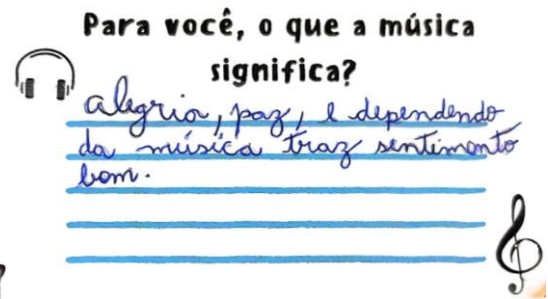 Para você, o que a música
significa?
alegria, paz, e dependendo
da música traz sentimento
bom.